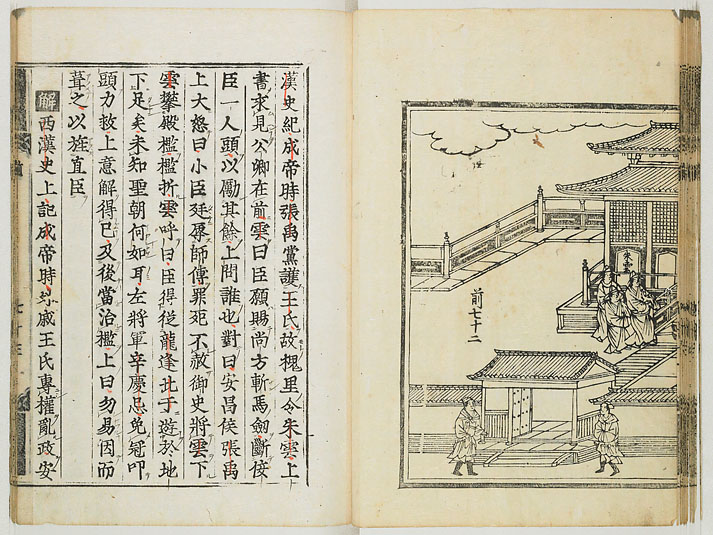 朱雲
前七十二
漢史紀成帝時張禹黨護王氏故槐里令朱雲上
書求見公卿在前雲曰臣願賜尚方斬馬劍斷佞
臣一人頭以勵其餘上問誰也對曰安昌侯張禹
上大怒曰小臣廷辱師傅罪死不赦御史將雲下
雲攀殿檻檻折雲呼曰臣得從龍逢比干遊於地
下足矣未知聖朝何如耳左將軍辛慶忌免冠叩
頭力救上意解得已及後當治檻上曰勿易因而
葺之以旌直臣
解西漢史上記成帝時外戚王氏專權亂政安